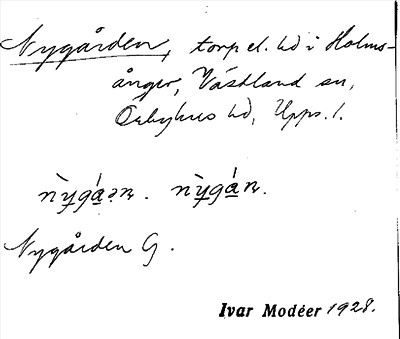 Nygården, torp el. ld i Holms-
ånger, Västland sn,
Örbyhus hd, Upps. l.
nỳgáən. nỳgán.
Nygården G.
Ivar Modéer 1928.